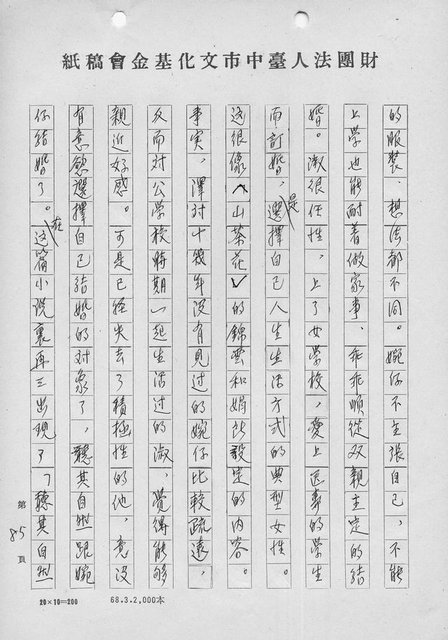 財團法人臺中市文化基金會稿紙
的服裝、想法都不同。婉仔不主張自己，不能
上学也能耐着做家事、乖乖順從双親主定的結
婚。淑很任性，上了女学校，愛上医專的学生
而訂婚，是選擇自己人生生活方式的典型女性。
这很像︿山茶花﹀的錦雲和娟此設定的内容。
事実，澤对十幾年没有見过的婉仔比較疏遠，
反而对公学校時期一起生活过的淑，覺得能够
親近好感。可是已経失去了積極性的他，竟没
有意慾選擇自己結婚的对象了，聽其自然跟婉
仔結婚了。在这篇小説裏再三出現了「聽其自然
第 85 頁
20×10=200
68.3.2,000本